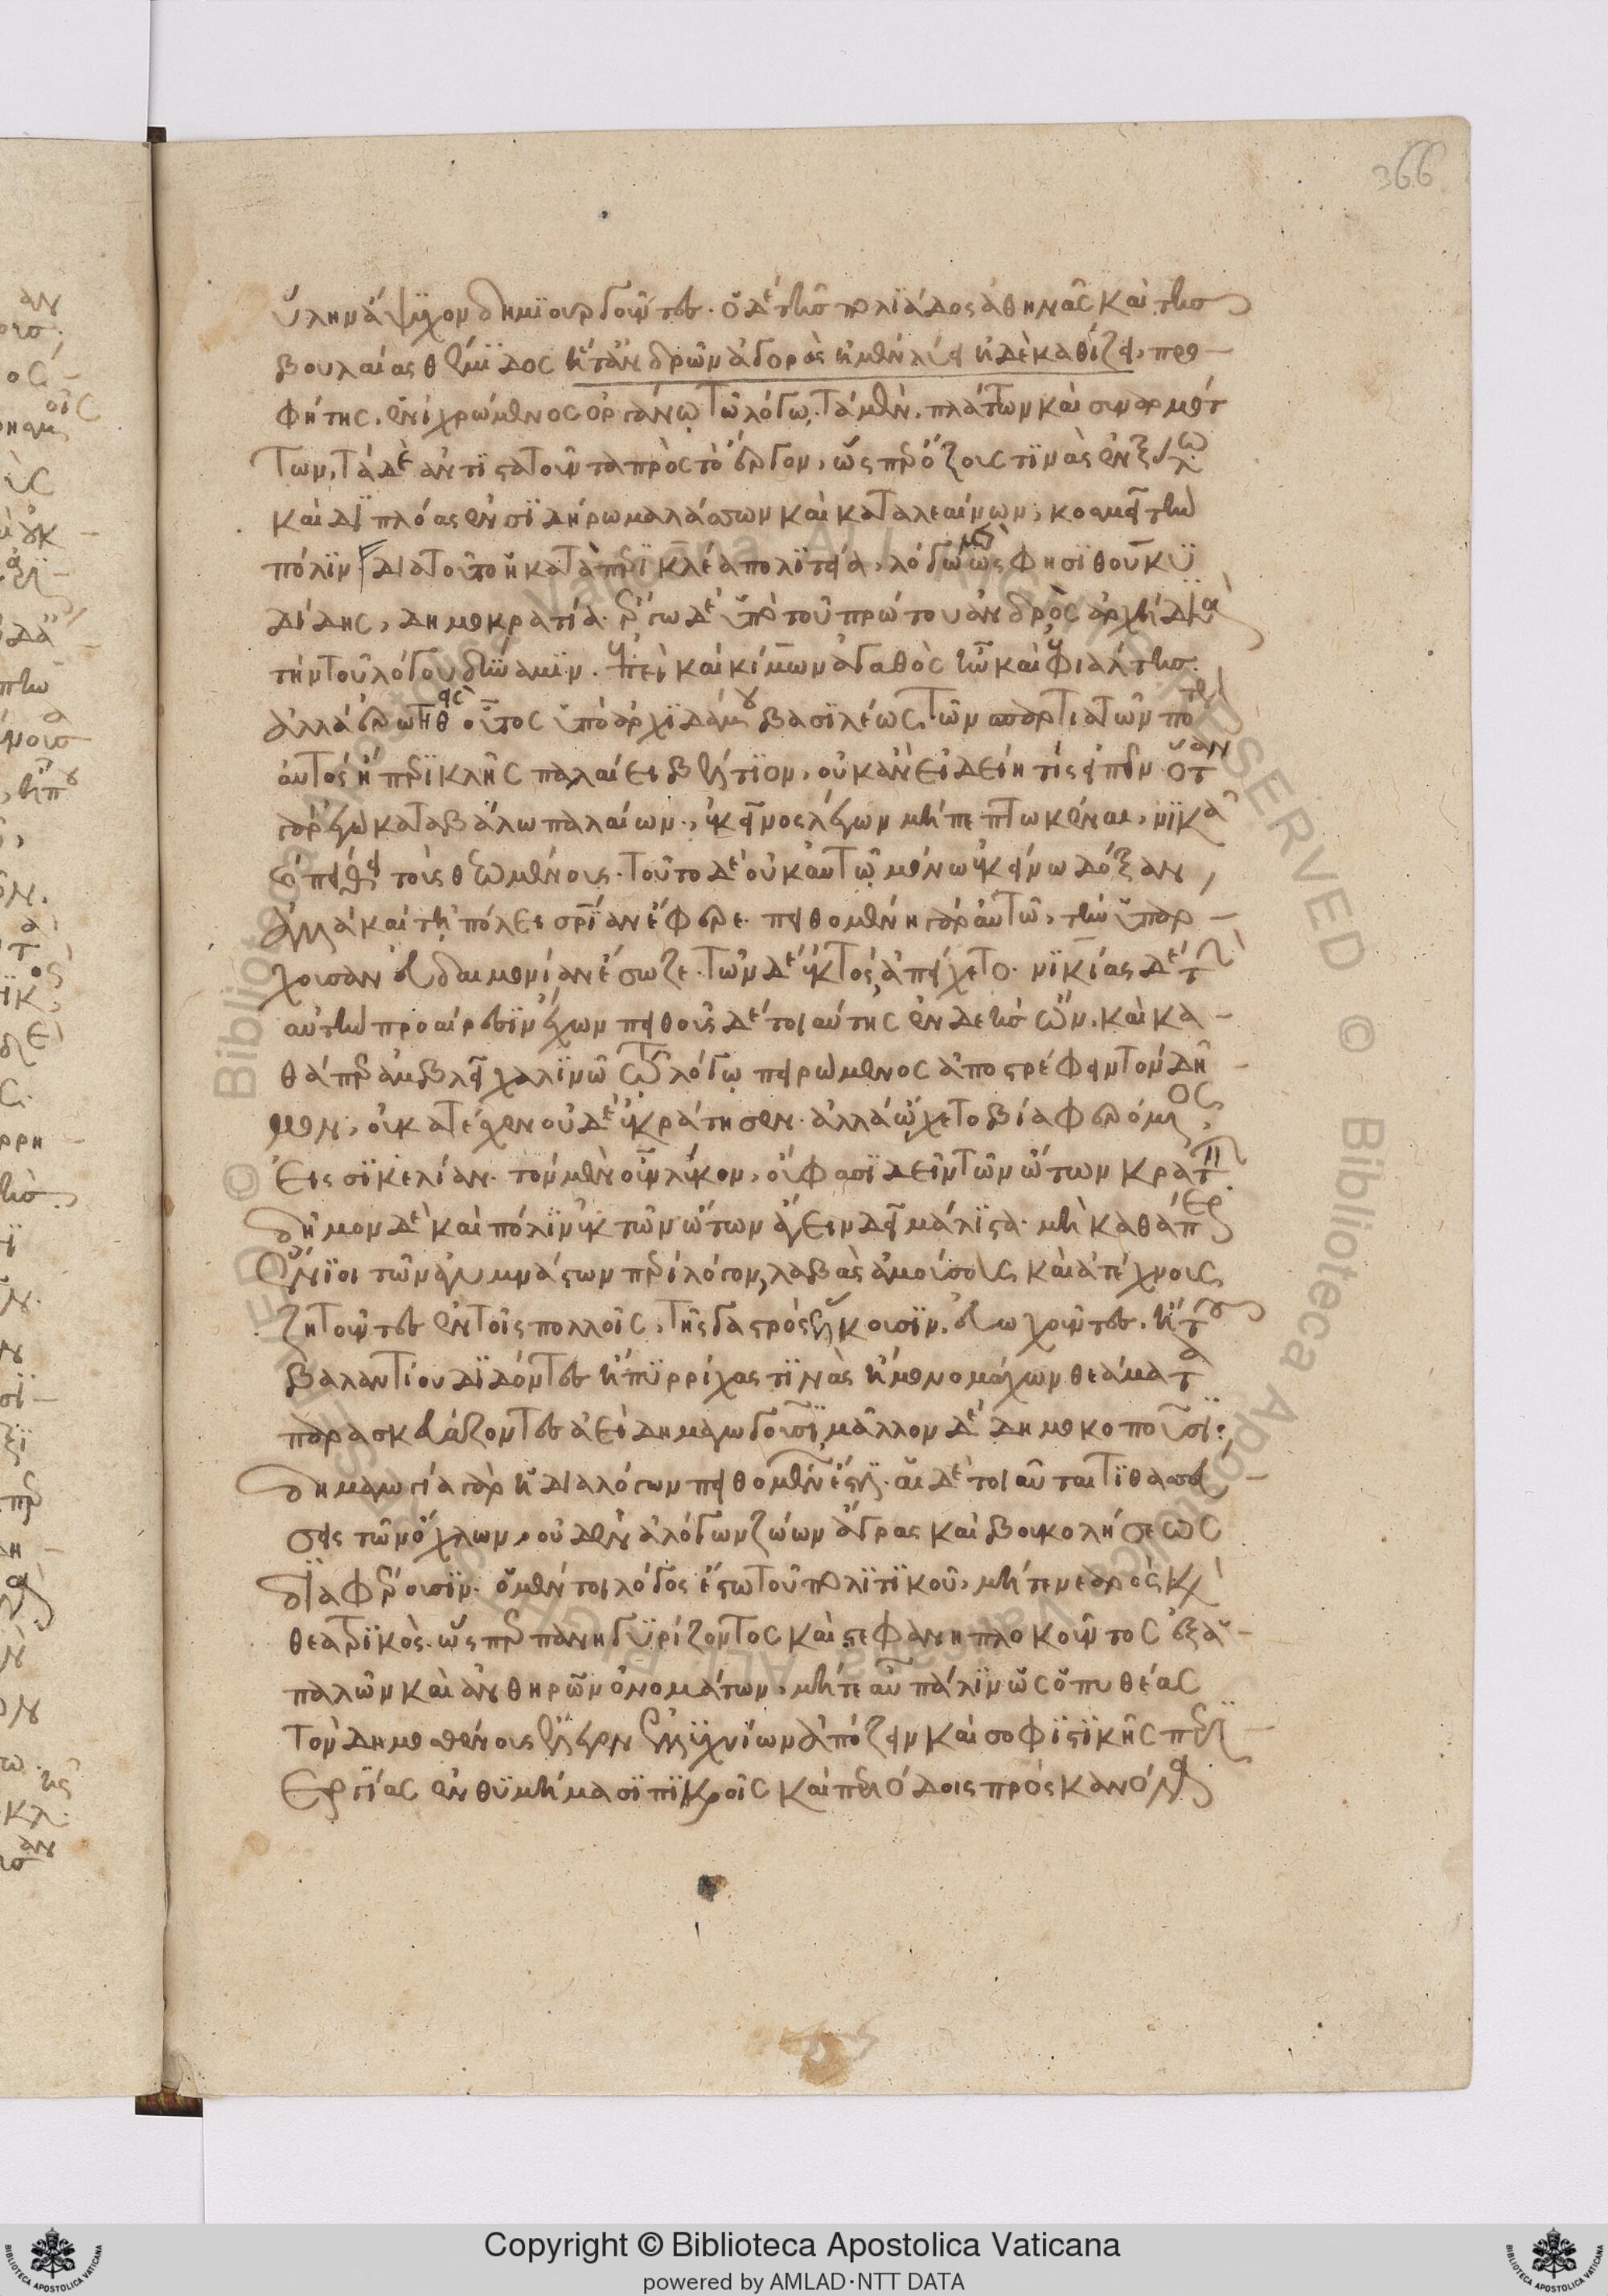 366
ὕλην ἄψϋχον δημϊουργοῦντες. ὁ δὲ τῆς πολϊάδος ἀθηνᾶς καὶ τῆς
βουλαίας θέμϊδος ἥτ' ἀνδρῶν ἀγορὰς ἠμὲν λύει ἠδὲ καθίζει, προ-
φήτης. ἑνὶ χρώμενος ὀργάνῳ τῷ λόγῳ, τὰ μὲν, πλάττων καὶ συναρμότ
των, τὰ δὲ ἀντϊστατοῦντα πρὸς τὸ ἔργον, ὥσπερ ὄζους τϊνὰς ἐν ξύλῳ
καὶ δϊπλόας ἐν σϊδήρῳ μαλάσσων καὶ καταλεαίνων, κοσμεῖ τὴν
πόλϊν διατοῦτο ἦν κατὰ περϊκλέα πολϊτεία, λόγῳ μὲν ὥς φησϊ θουκϋ
δίδης, δημοκρατία. ἔργῳ δὲ ὑπὸ τοῦ πρώτου ἀνδρὸς ἀρχὴ διὰ
τὴν τοῦ λόγου δύναμϊν. ἐπεὶ καὶ κίμων ἀγαθὸς ἦν καὶ ἐφιάλτης.
ἀλλ' ἐρωτηθεὶς οὗτος ὑπὸ ἀρχϊδάμου βασϊλέως τῶν σπαρτιατῶν πότερον
αὐτὸς ἢ περϊκλῆς παλαίει βέλτϊον, οὐκ ἂν εἰδείη τίς εἶπεν ὅταν
γὰρ ἐγὼ καταβάλω παλαίων, ἐκεῖνος λέγων μὴ πεπτωκέναι, νϊκᾶ
καὶ πείθει τοὺς θεωμένους. τοῦτο δὲ οὐκ αὐτῷ μόνῳ ἐκείνῳ δόξαν,
ἀλλὰ καὶ τῇ πόλει σωτηρίαν ἔφερε. πειθομένη γὰρ αὐτῷ, τὴν ὑπάρ-
χουσαν εὐδαιμονίαν ἔσωζε. τῶν δὲ ἐκτὸς ἀπείχετο. νϊκίας δὲ τὴν
αὐτὴν προαίρεσϊν ἔχων πειθοῦς δὲ τοιαύτης ἐνδεὴς ὤν. καὶ κα-
θάπερ ἀμβλεῖ χαλϊνῷ τῷ λόγῳ πειρώμενος ἀποστρέφειν τὸν δῆ-
μον, οὐ κατέσχεν οὐδὲ ἐκράτησεν. ἀλλὰ ᾤχετο βίᾳ φερόμενος
εἰς σϊκελίαν. τὸν μὲν οὖν λύκον, οὔ φασϊ δεῖν τῶν ὤτων κρατεῖν
δῆμον δὲ καὶ πόλϊν ἐκ τῶν ὤτων ἄγειν δεῖ μάλϊστα. μὴ καθάπερ
ἔνϊοι τῶν ἀγυμνάστων περὶ λόγον, λαβὰς ἀμούσους καὶ ἀτέχνους
ζητοῦντες ἐν τοῖς πολλοῖς, τῆς γαστρὸς ἕλκουσϊν, εὐωχοῦντες, ἢ τοῦ
βαλαντίου δϊδόντες ἢ πϋρρίχας τϊνὰς ἢ μονομάχων θεάματα
παρασκευάζοντες ἀεὶ δημαγωγοῦσϊ, μᾶλλον δὲ δημοκοποῦσϊ:
δημαγωγία γὰρ ἡ διὰ λόγων πειθομένων ἐστϊν. αἱ δὲ τοιαῦται τϊθασεύ-
σεις τῶν ὄχλων, οὐδὲν ἀλόγων ζώων ἄγρας καὶ βουκολήσεως
διαφέρουσϊν. ὁ μέν τοι λόγος ἔστω τοῦ πολϊτϊκοῦ, μήτε νεαρὸς καὶ
θεατρϊκὸς. ὥσπερ πανηγϋρίζοντος καὶ στεφανηπλοκοῦντος ἐξ ἁ-
παλῶν καὶ ἀνθηρῶν ὀνομάτων, μήτε αὖ πάλϊν ὡς ὁ πυθέας
τὸν δημοσθένους ἔλεγεν ἐλλϋχνίων ἀπόζειν καὶ σοφϊστϊκῆς περι-
εργίας ἐνθϋμήμασϊ πϊκροῖς καὶ περιόδοις πρὸς κανόνα